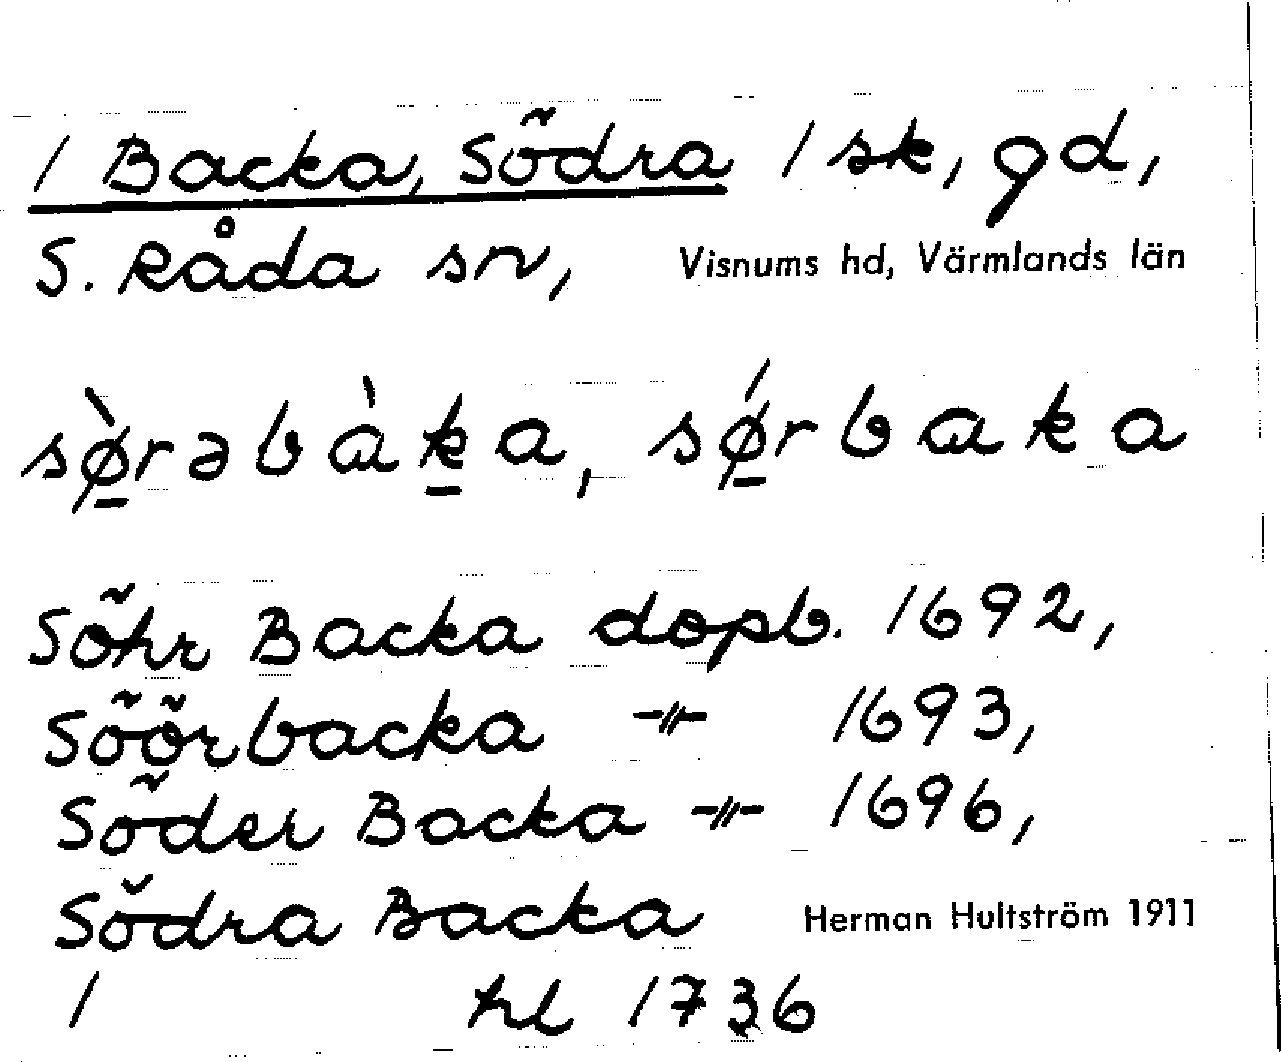 / Backa, Södra / sk, gd,
S. Råda sn, Visnums hd, Värmlands län
sø̀rəbàka, sǿrbaka
Söhr Backa dopb. 1692,
Söörbacka -"- 1693,
Söder Backa -"- 1696,
Södra Backa Herman Hultström 1911
/ hl 1736